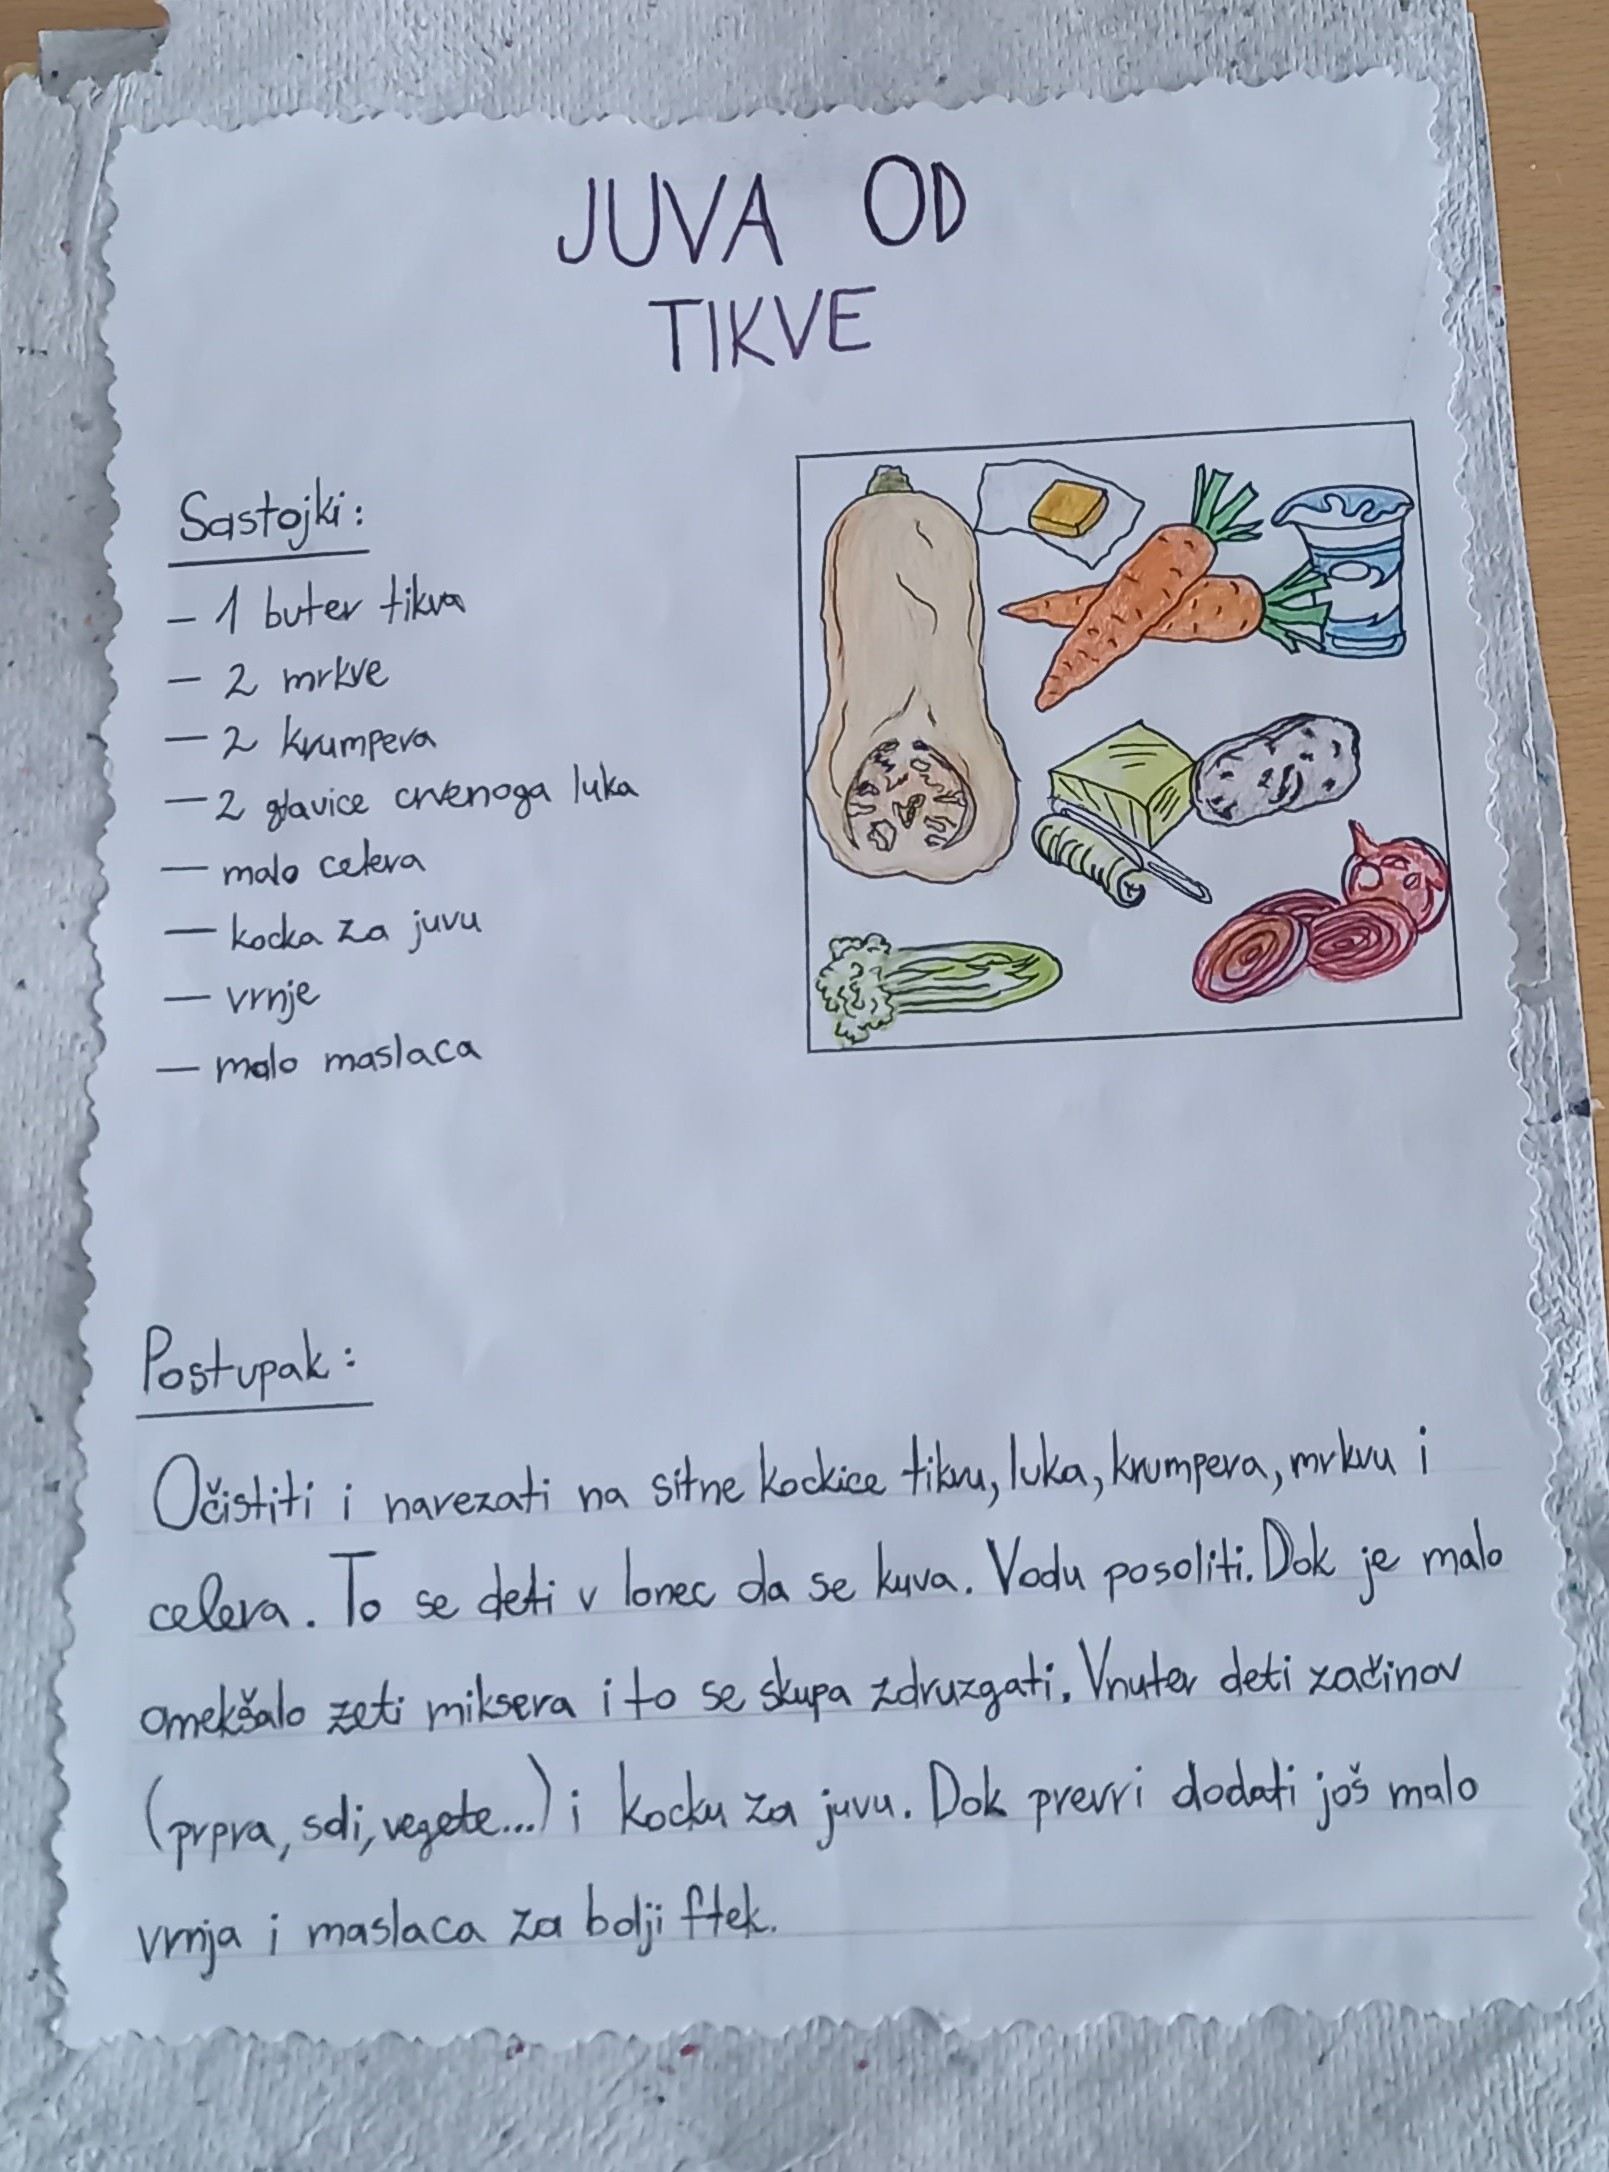 JUVA OD
TIKVE
Sastojki:
- 1 buter tikva
- 2 mrkve
- 2 krumpera
- 2 glavice crvenoga luka
- malo celera
- kocka za juvu
- vrnje
- malo maslaca
Postupak:
Očistiti i narezati na sitne kockice tikvu, luka, krumpera, mrkvu i
celera. To se deti v lonec da se kuva. Vodu posoliti. Dok je malo
omekšalo zeti miksera i to se skupa zdruzgati. Vnuter deti začinov
(prpra, soli, vegete...) i kocku za juvu. Dok prevri dodati još malo
vrnja i maslaca za bolji ftek.